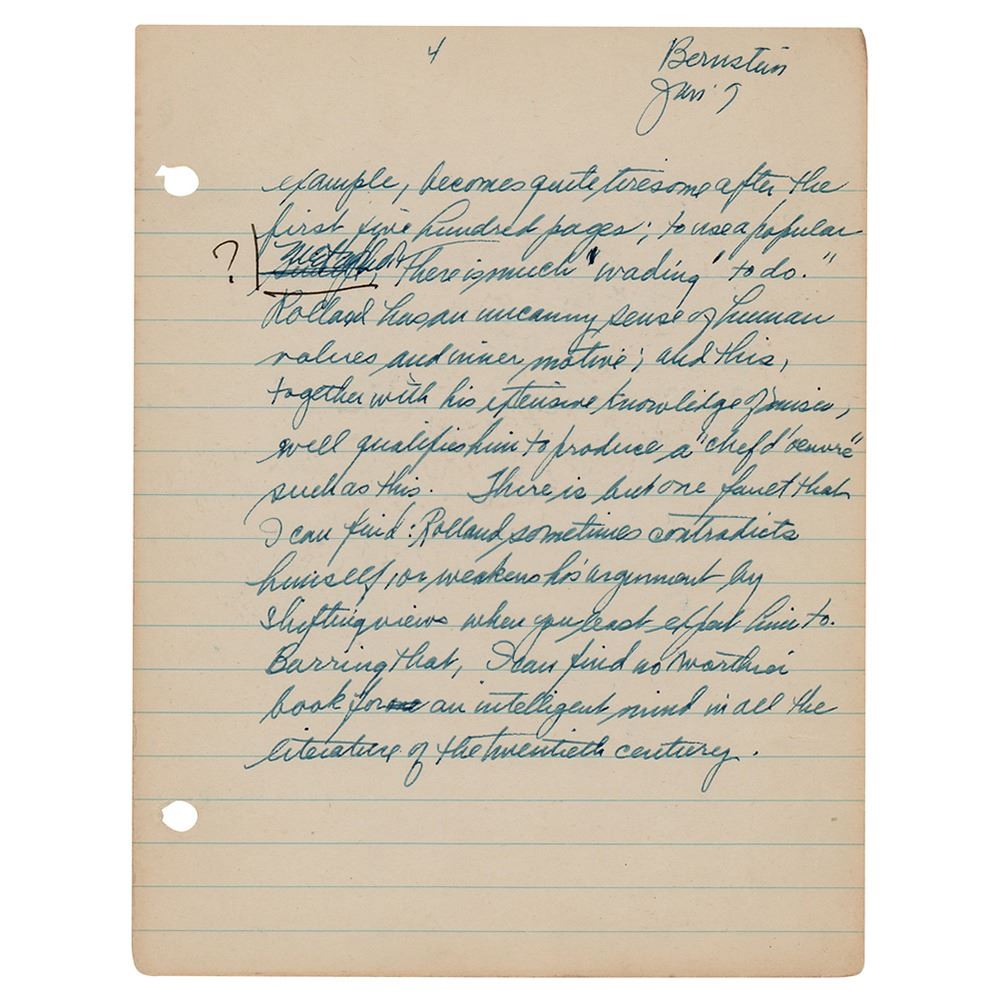 4
Bernstein
example, becomes quite tiresome after the
first five hundred pages; to use a popular
? metaphor, There is much "wading" to do."
Rolland has an uncanny sense of human
values and inner motive; and this,
together with his extensive knowledge of music,
well qualifies him to produce a "chef d'oeuvre"
such as this. There is but one fault that
I can find: Rolland sometimes contradicts
himself, or weakens his argument by
shifting views when you least expect him to.
Barring that, I can find no worthier
book for an intelligent mind in all the
literature of the twentieth century.